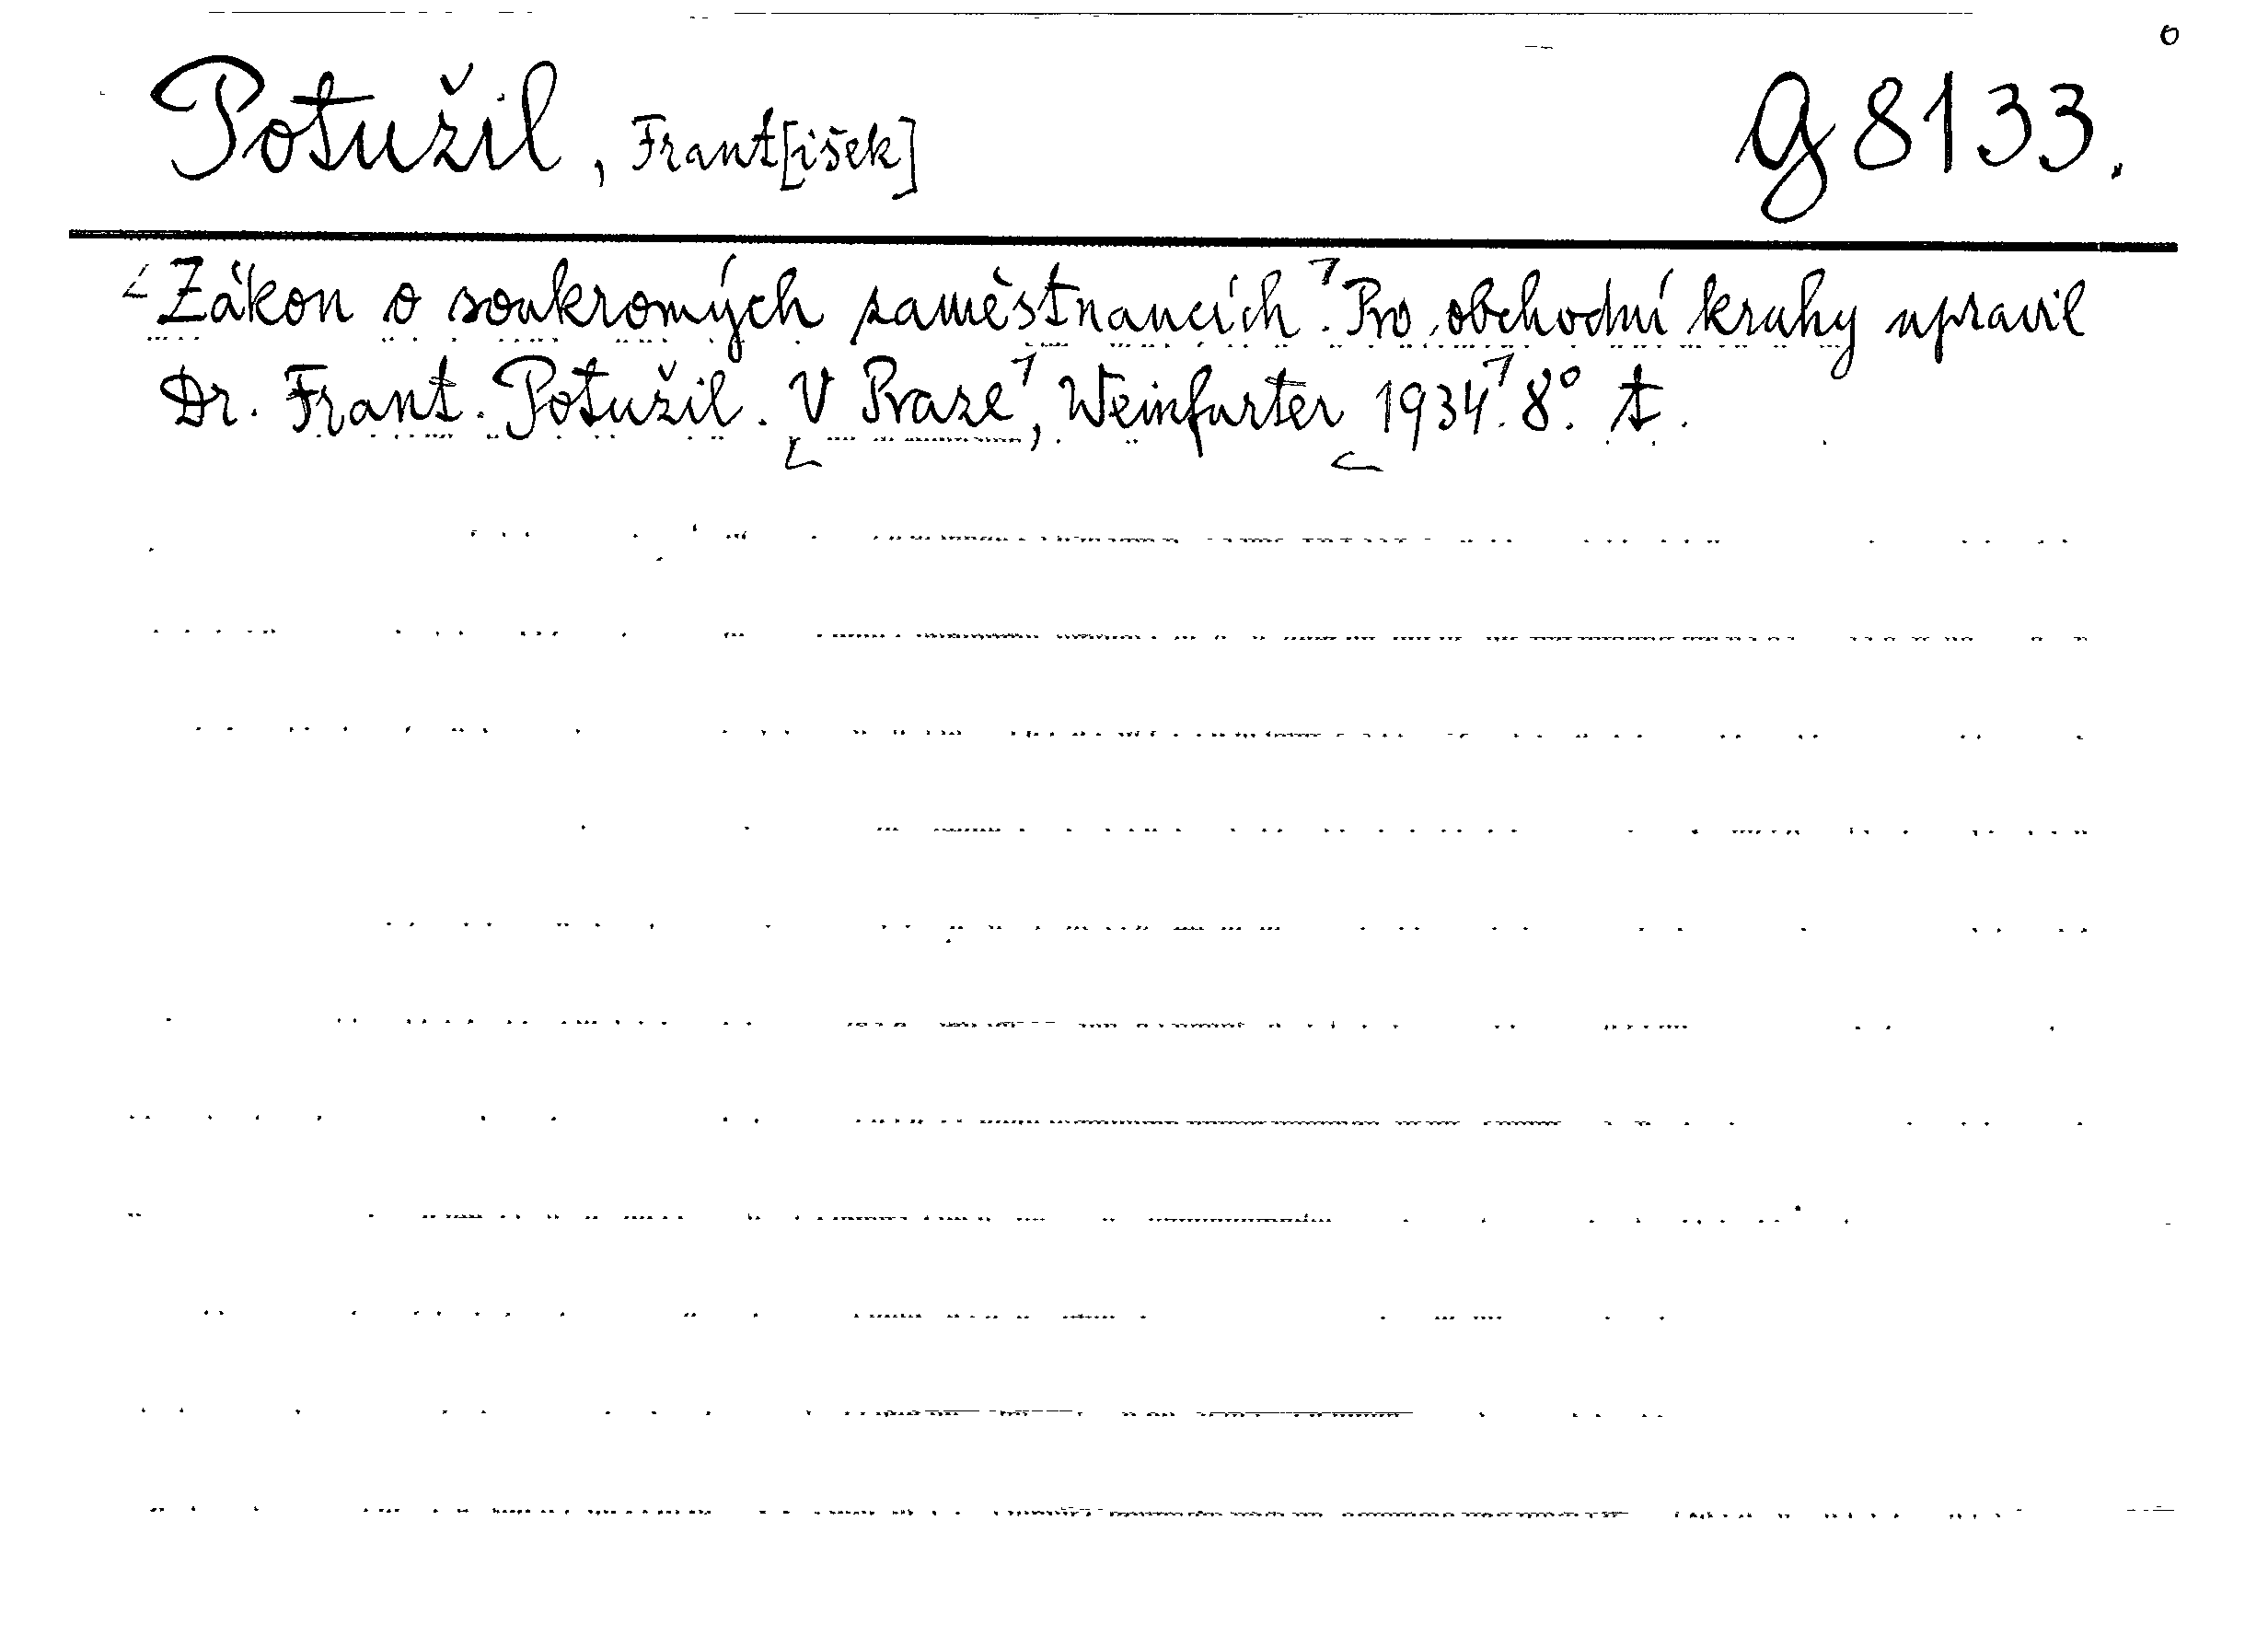 Potužil, Frant[išek] G 8133.
Zákon o soukromých zaměstnancích. Pro obchodní kruhy upravil
Dr. Frant. Potužil. V Praze, Weinfurter 1934. 8°. t.